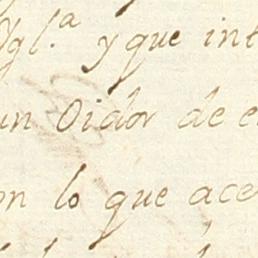 Ygl.ª y que int
un Oidor de e
on lo que ace